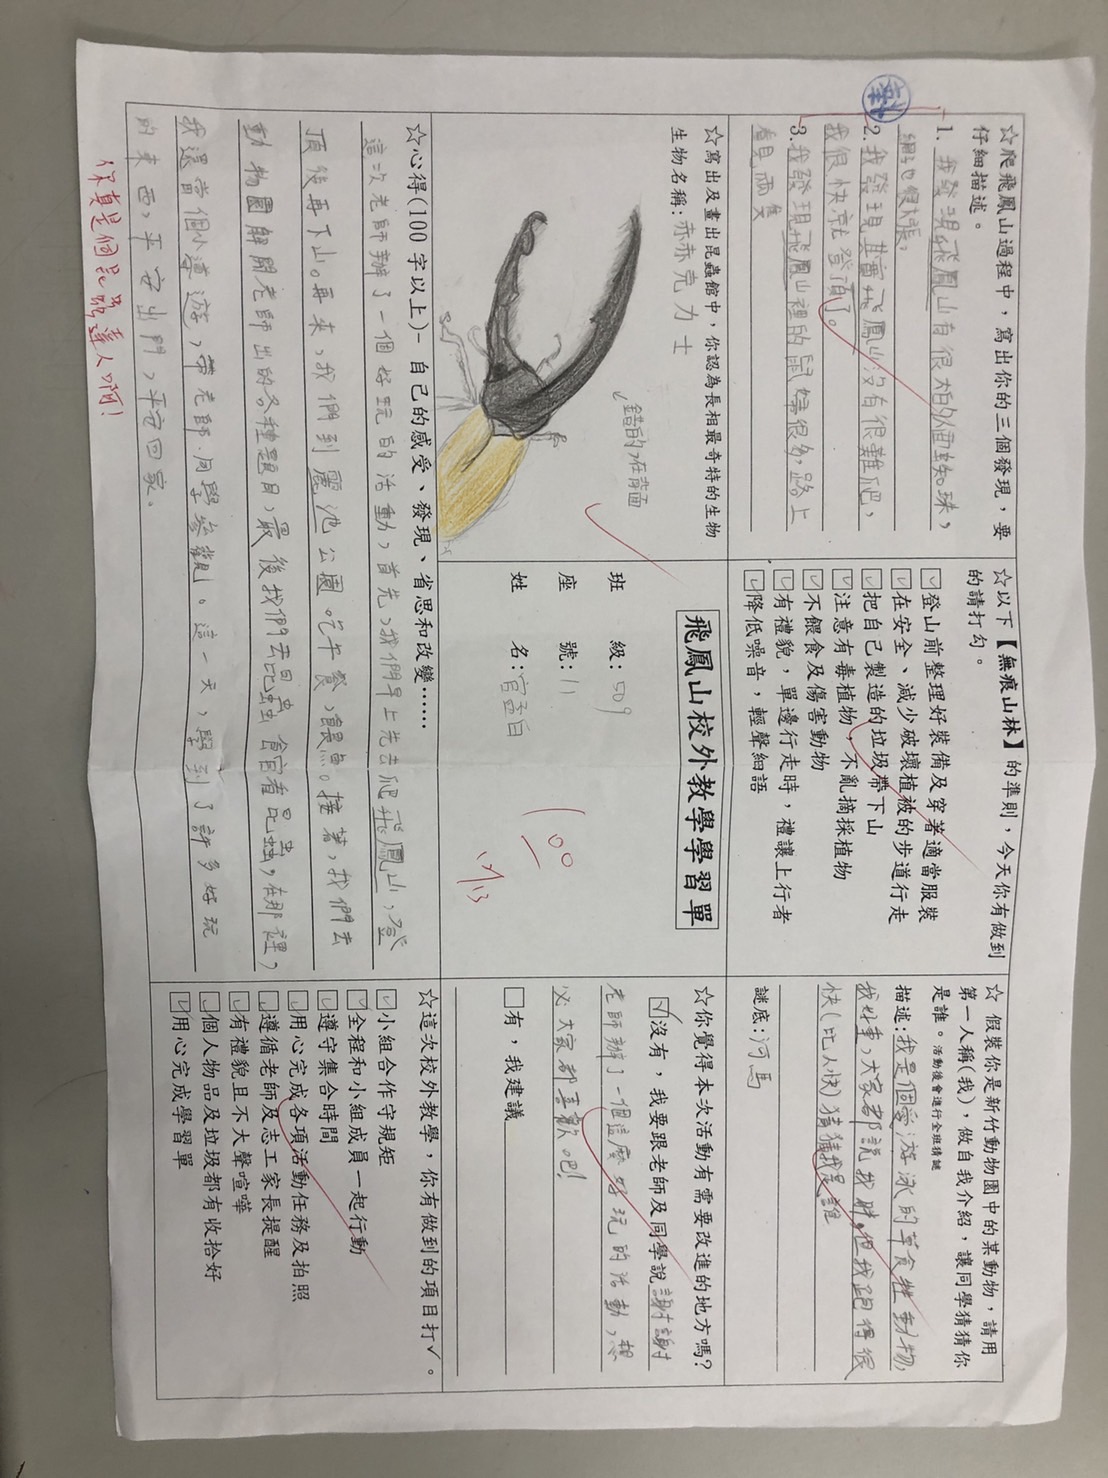 ☆爬飛鳳山過程中，寫出你的三個發現，要
仔細描述。
1. 我發現飛鳳山有很大的人面蜘蛛，
網也很大張。
2. 我發現其實飛鳳山沒有很難爬，
我很快就登頂了。
3. 我發現飛鳳山裡的鼠婦很多，路上
看見兩隻
☆以下【無痕山林】的準則，今天你有做到
的請打勾。
☑登山前整理好裝備及穿著適當服裝
☑在安全、減少破壞植被的步道行走
☑把自己製造的垃圾帶下山
☑注意有毒植物，不亂摘採植物
☑不餵食及傷害動物
☑有禮貌，單邊行走時，禮讓上行者
☑降低噪音，輕聲細語
☆ 假裝你是新竹動物園中的某動物，請用
第一人稱(我)，做自我介紹，讓同學猜猜你
是誰。活動後會進行全班猜謎
描述:我是個愛游泳的草食性動物，
大家都說我胖，但我跑得很
快(比人快)猜猜我是誰
謎底:河馬
☆寫出及畫出昆蟲館中，你認為長相最奇特的生物
生物名稱:赫赤克力士
錯的，在背面
飛鳳山校外教學學習單
班　　級:509
座　　號:11
姓　　名:
100
12/13
☆你覺得本次活動有需要改進的地方嗎?
☑沒有，我要跟老師及同學說謝謝
老師辦了一個這麼好玩的活動，想
必大家都喜歡吧!
☐有，我建議
☆心得(100 字以上)– 自己的感受、發現、省思和改變……
這次老師辦了一個好玩的活動，首先，我們早上先去爬飛鳳山，登
頂後再下山。再來，我們到麗池公園吃午餐、餵魚。接著，我們去
動物園解開老師出的各種題目，最後我們去昆蟲館看昆蟲，在那裡，
我還當個小導遊，帶老師、同學參觀。這一天，學到了許多好玩
的東西，平安出門，平安回家。
你真是個昆蟲達人啊！
☆這次校外教學，你有做到的項目打✓。
☑小組合作守規矩
☑全程和小組成員一起行動
☑遵守集合時間
☑用心完成各項活動任務及拍照
☑遵循老師及志工家長提醒
☑有禮貌且不大聲喧嘩
☑個人物品及垃圾都有收拾好
☑用心完成學習單